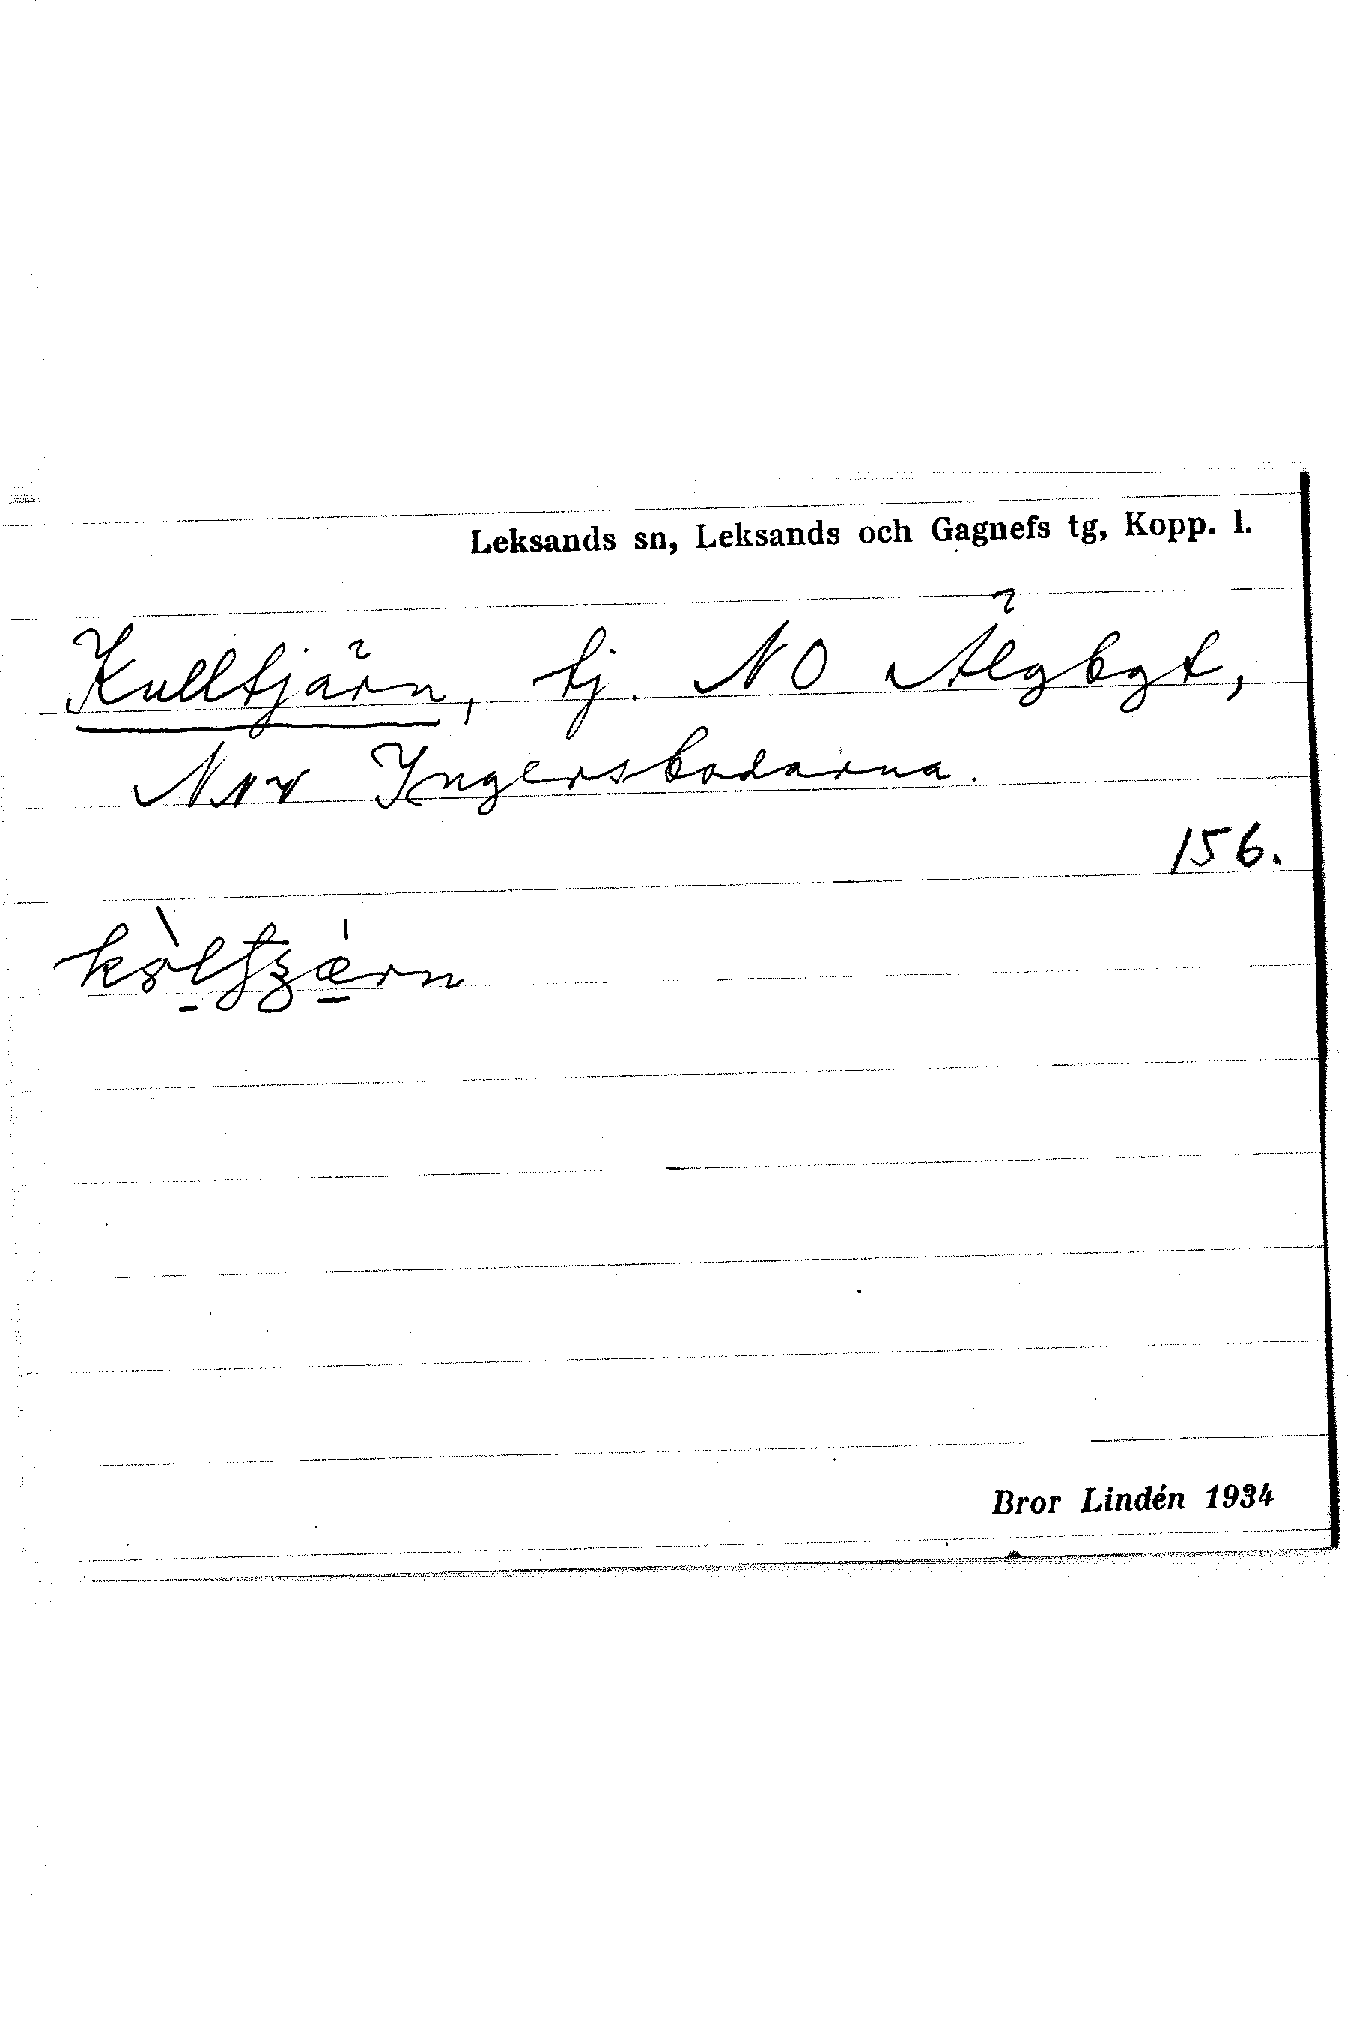 Leksands sn, Leksands och Gagnefs tg, Kopp. l.
Kulltjärn, tj. NO Älgbgt,
NNV Ingersbodarna.
156.
Bror Lindén 1934